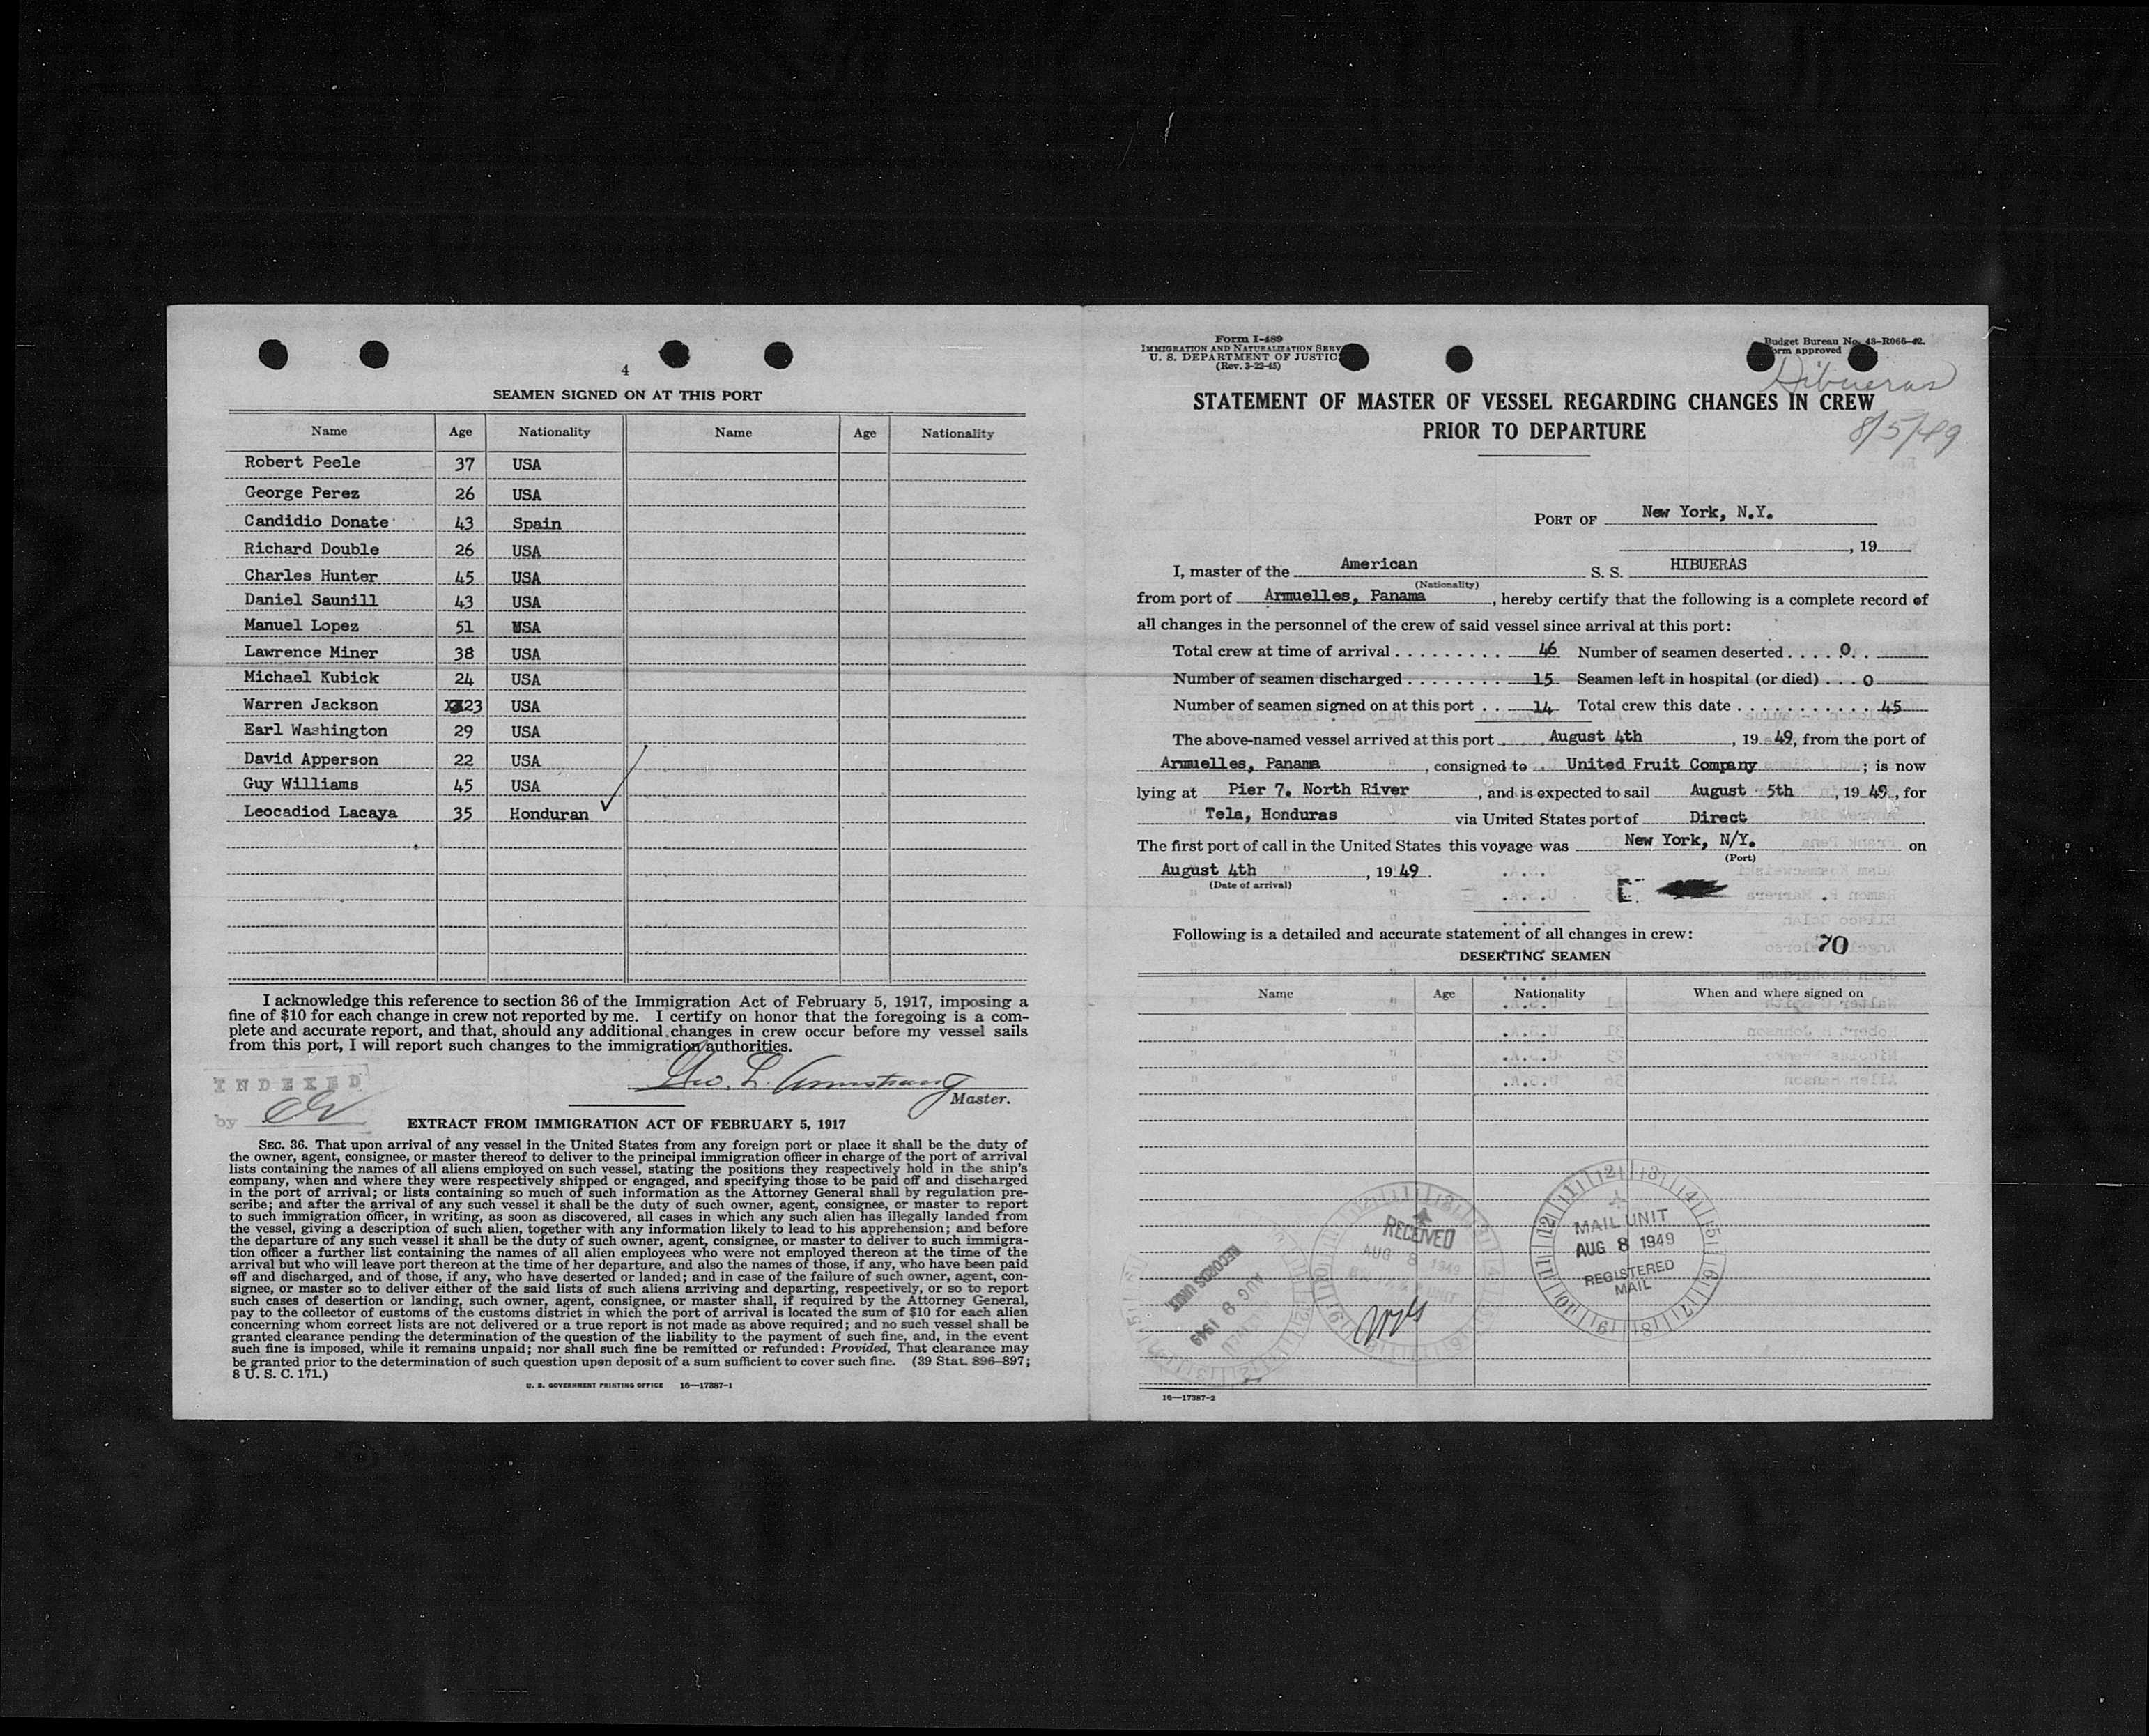 4
SEAMEN SIGNED ON AT THIS PORT
Name Age Nationality Name Age Nationality
Robert Peele 37 USA
George Perez 26 USA
Candidio Donate 43 Spain
Richard Double 26 USA
Charles Hunter 45 USA
Daniel Saunill 43 USA
Manuel Lopez 51 USA
Lawrence Miner 38 USA
Michael Kubick 24 USA
Warren Jackson 23 USA
Earl Washington 29 USA
David Apperson 22 USA
Guy Williams 45 USA
Leocadiod Lacaya 35 Honduran
I acknowledge this reference to section 36 of the Immigration Act of February 5, 1917, imposing a
fine of $10 for each change in crew not reported by me. I certify on honor that the foregoing is a com-
plete and accurate report, and that, should any additional changes in crew occur before my vessel sails
from this port, I will report such changes to the immigration authorities.
Geo. L. Armstrong
Master.
INDEXED
by
EXTRACT FROM IMMIGRATION ACT OF FEBRUARY 5, 1917
SEC. 36. That upon arrival of any vessel in the United States from any foreign port or place it shall be the duty of
the owner, agent, consignee, or master thereof to deliver to the principal immigration officer in charge of the port of arrival
lists containing the names of all aliens employed on such vessel, stating the positions they respectively hold in the ship's
company, when and where they were respectively shipped or engaged, and specifying those to be paid off and discharged
in the port of arrival; or lists containing so much of such information as the Attorney General shall by regulation pre-
scribe; and after the arrival of any such vessel it shall be the duty of such owner, agent, consignee, or master to report
to such immigration officer, in writing, as soon as discovered, all cases in which any such alien has illegally landed from
the vessel, giving a description of such alien, together with any information likely to lead to his apprehension; and before
the departure of any such vessel it shall be the duty of such owner, agent, consignee, or master to deliver to such immigra-
tion officer a further list containing the names of all alien employees who were not employed thereon at the time of the
arrival but who will leave port thereon at the time of her departure, and also the names of those, if any, who have been paid
off and discharged, and of those, if any, who have deserted or landed; and in case of the failure of such owner, agent, con-
signee, or master so to deliver either of the said lists of such aliens arriving and departing, respectively, or so to report
such cases of desertion or landing, such owner, agent, consignee, or master shall, if required by the Attorney General,
pay to the collector of customs of the customs district in which the port of arrival is located the sum of $10 for each alien
concerning whom correct lists are not delivered or a true report is not made as above required; and no such vessel shall be
granted clearance pending the determination of the question of the liability to the payment of such fine, and, in the event
such fine is imposed, while it remains unpaid; nor shall such fine be remitted or refunded: Provided, That clearance may
be granted prior to the determination of such question upon deposit of a sum sufficient to cover such fine. (39 Stat. 896–897;
8 U. S. C. 171.)
U. S. GOVERNMENT PRINTING OFFICE 16—17387-1
Form I-489
IMMIGRATION AND NATURALIZATION SERV
U. S. DEPARTMENT OF JUSTIC
(Rev. 3-22-45)
Budget Bureau No. 43-R066-42.
orm approved
Hibueras
8/5/49
STATEMENT OF MASTER OF VESSEL REGARDING CHANGES IN CREW
PRIOR TO DEPARTURE
PORT OF New York, N.Y.
, 19
I, master of the American S. S. HIBUERAS
(Nationality)
from port of Armuelles, Panama, hereby certify that the following is a complete record of
all changes in the personnel of the crew of said vessel since arrival at this port:
Total crew at time of arrival 46 Number of seamen deserted 0
Number of seamen discharged 15 Seamen left in hospital (or died) 0
Number of seamen signed on at this port 14 Total crew this date 45
The above-named vessel arrived at this port August 4th, 1949, from the port of
Armuelles, Panama, consigned to United Fruit Company; is now
lying at Pier 7. North River, and is expected to sail August 5th, 1949, for
Tela, Honduras via United States port of Direct
The first port of call in the United States this voyage was New York, N/Y. on
(Port)
August 4th, 1949.
(Date of arrival)
Following is a detailed and accurate statement of all changes in crew:
70
DESERTING SEAMEN
Name Age Nationality When and where signed on
RECORDS UNIT
AUG 9 1949
RECEIVED
AUG 8 1949
MAIL UNIT
AUG 8 1949
REGISTERED
MAIL
16—17387-2